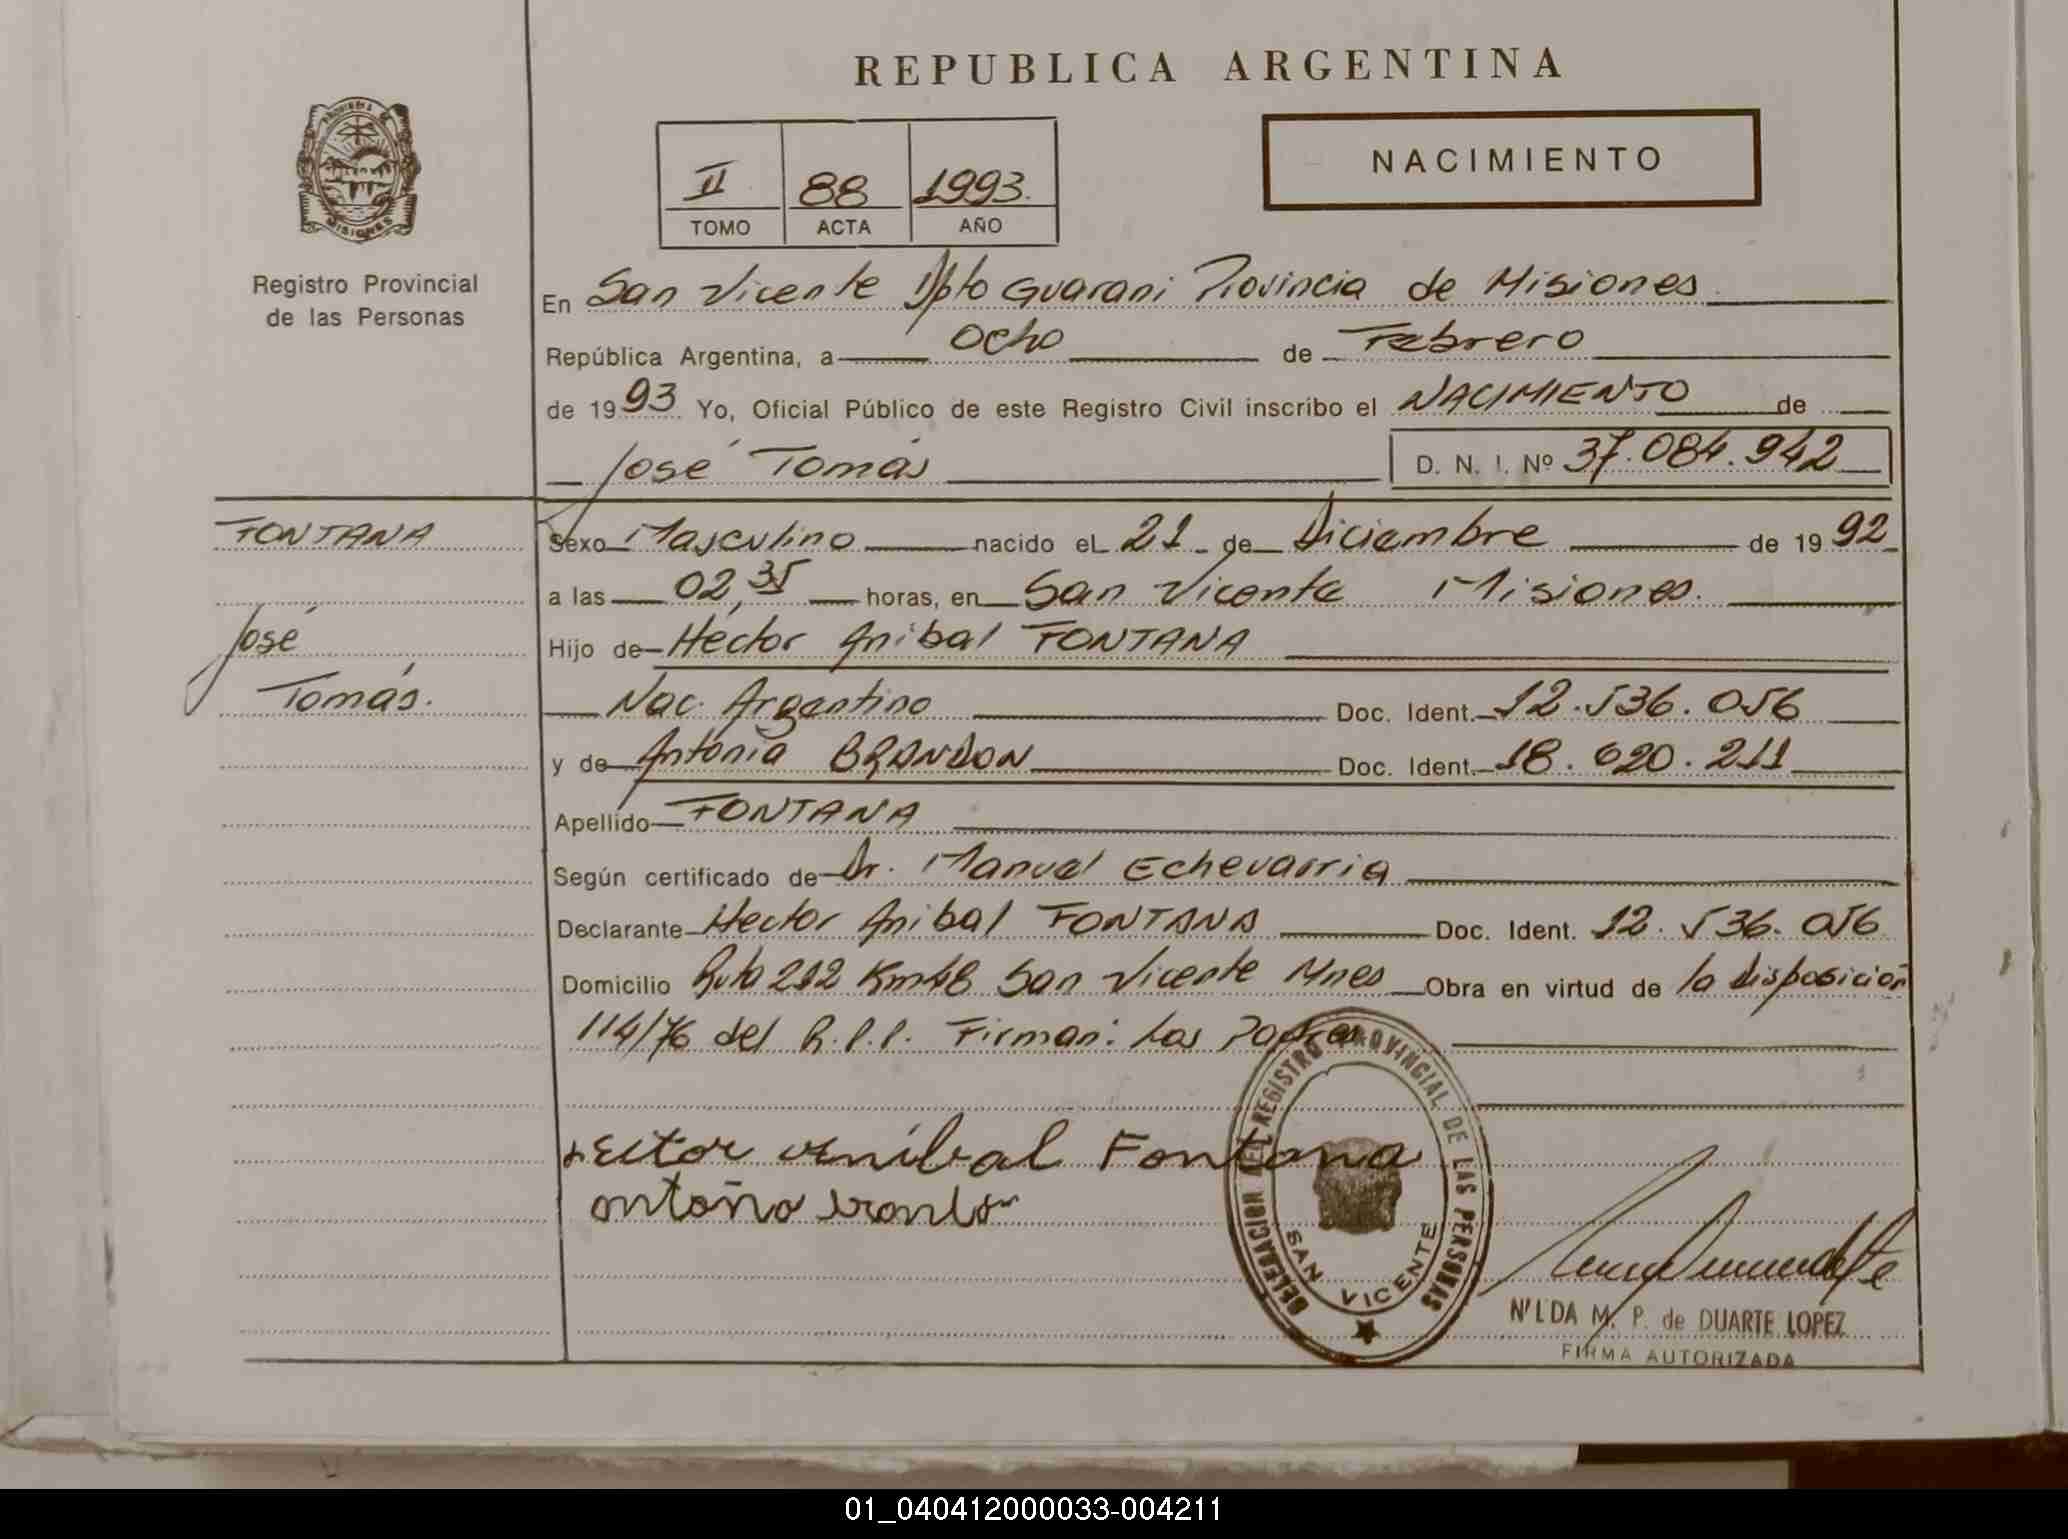 REPUBLICA ARGENTINA
PROVINCIA DE MISIONES
Registro Provincial
de las Personas
II 88 1993.
TOMO ACTA AÑO
NACIMIENTO
En San Vicente Dpto Guarani Provincia de Misiones
República Argentina, a Ocho de Febrero
de 1993 Yo, Oficial Público de este Registro Civil inscribo el NACIMIENTO de
José Tomás D. N. I. Nº 37.084.942
FONTANA
José
Tomás.
Sexo Masculino nacido el 21 de Diciembre de 1992
a las 02,35 horas, en San Vicente Misiones.
Hijo de Héctor Anibal FONTANA
Nac. Argentino Doc. Ident. 12.536.056
y de Antonia BRANDON Doc. Ident. 18.620.211
Apellido FONTANA
Según certificado de Dr. Manuel Echevarria
Declarante Hector Anibal FONTANA Doc. Ident. 12.536.056
Domicilio Ruta 212 Km 48 San Vicente Mnes Obra en virtud de la disposición
114/76 del R.P.P. Firman: Los Padres
Fontana
DELEGACION DEL REGISTRO PROVINCIAL DE LAS PERSONAS
SAN VICENTE
NILDA M. P. de DUARTE LOPEZ
FIRMA AUTORIZADA
01_040412000033-004211